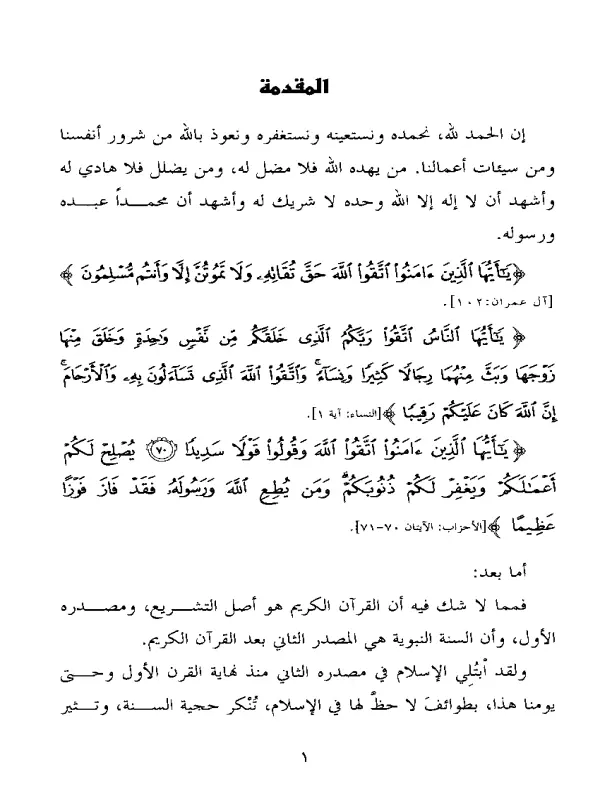 المقدمة
إن الحمد لله، نحمده ونستعينه ونستغفره ونعوذ بالله من شرور أنفسنا
ومن سيئات أعمالنا. من يهده الله فلا مضل له، ومن يضلل فلا هادي له
وأشهد أن لا إله إلا الله وحده لا شريك له وأشهد أن محمــداً عبــده
ورسوله.
﴿يَٰٓأَيُّهَا ٱلَّذِينَ ءَامَنُوا۟ ٱتَّقُوا۟ ٱللَّهَ حَقَّ تُقَاتِهِۦ وَلَا تَمُوتُنَّ إِلَّا وَأَنتُم مُّسْلِمُونَ﴾
[آل عمران:١٠٢].
﴿يَٰٓأَيُّهَا ٱلنَّاسُ ٱتَّقُوا۟ رَبَّكُمُ ٱلَّذِى خَلَقَكُم مِّن نَّفْسٍ وَٰحِدَةٍ وَخَلَقَ مِنْهَا
زَوْجَهَا وَبَثَّ مِنْهُمَا رِجَالًا كَثِيرًا وَنِسَآءً ۚ وَٱتَّقُوا۟ ٱللَّهَ ٱلَّذِى تَسَآءَلُونَ بِهِۦ وَٱلْأَرْحَامَ ۚ
إِنَّ ٱللَّهَ كَانَ عَلَيْكُمْ رَقِيبًا﴾[النساء: آية ١].
﴿يَٰٓأَيُّهَا ٱلَّذِينَ ءَامَنُوا۟ ٱتَّقُوا۟ ٱللَّهَ وَقُولُوا۟ قَوْلًا سَدِيدًا ٧٠ يُصْلِحْ لَكُمْ
أَعْمَٰلَكُمْ وَيَغْفِرْ لَكُمْ ذُنُوبَكُمْ ۗ وَمَن يُطِعِ ٱللَّهَ وَرَسُولَهُۥ فَقَدْ فَازَ فَوْزًا
عَظِيمًا﴾[الأحزاب: الآيتان ٧٠-٧١].
أما بعد:
فمما لا شك فيه أن القرآن الكريم هو أصل التشــريع، ومصــدره
الأول، وأن السنة النبوية هي المصدر الثاني بعد القرآن الكريم.
ولقد اُبتُلِي الإسلام في مصدره الثاني منذ نهاية القرن الأول وحــتى
يومنا هذا، بطوائفَ لا حظَّ لها في الإسلام، تُنْكر حجية الســنة، وتــثير
١